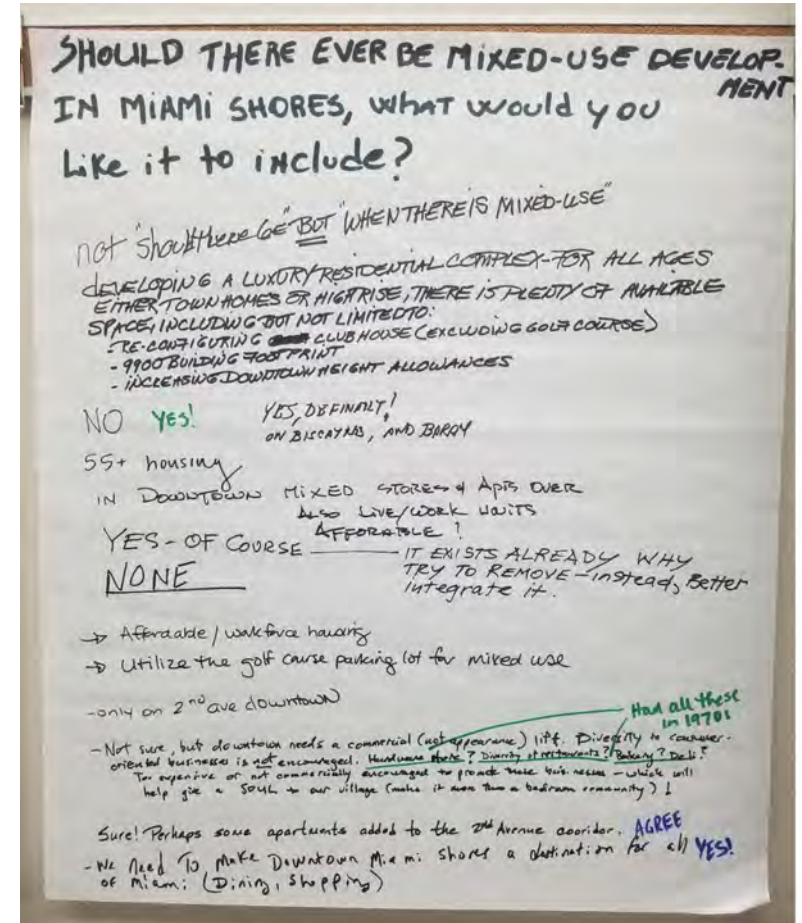 SHOULD THERE EVER BE MIXED-USE DEVELOP-
MENT
IN MIAMI SHORES, WHAT WOULD YOU
Like it to include?
not "should there be" BUT "WHEN THERE IS MIXED-USE"
DEVELOPING A LUXURY RESIDENTIAL COMPLEX-FOR ALL AGES
EITHER TOWN HOMES OR HIGHRISE, THERE IS PLENTY OF AVAILABLE
SPACE, INCLUDING BUT NOT LIMITED TO:
- RE-CONFIGURING CLUBHOUSE (EXCLUDING GOLF COURSE)
- 9900 BUILDING FOOTPRINT
- INCREASING DOWNTOWN HEIGHT ALLOWANCES
NO YES! YES, DEFINATLY!
ON BISCAYNE, AND BARRY
55+ housing
IN DOWNTOWN MIXED STORES & APTS OVER
ALSO LIVE/WORK UNITS
AFFORABLE!
YES - OF COURSE — IT EXISTS ALREADY WHY
TRY TO REMOVE - instead, Better
integrate it.
NONE
→ Affordable / workforce housing
→ Utilize the golf course parking lot for mixed use
- only on 2nd ave downtown
Had all these
in 1970s
- Not sure, but downtown needs a commercial (not appearance) lift. Diversity to consumer-
oriented businesses is not encouraged. Hardware store? Diversity of restaurants? Bakery? Deli?
Too expensive or not commercially encouraged to promote these businesses - which will
help give a SOUL to our village (make it more than a bedroom community)!
Sure! Perhaps some apartments added to the 2nd Avenue cooridor. AGREE
- We need To Make Downtown Miami Shores a destination for all YES!
of Miami (Dining, Shopping)